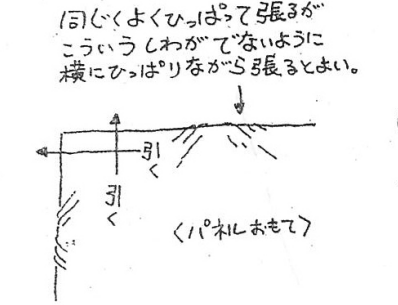 同じくよくひっぱって張るが
こういうしわがでないように
横にひっぱりながら張るとよい。
引く
引く
〈パネルおもて〉